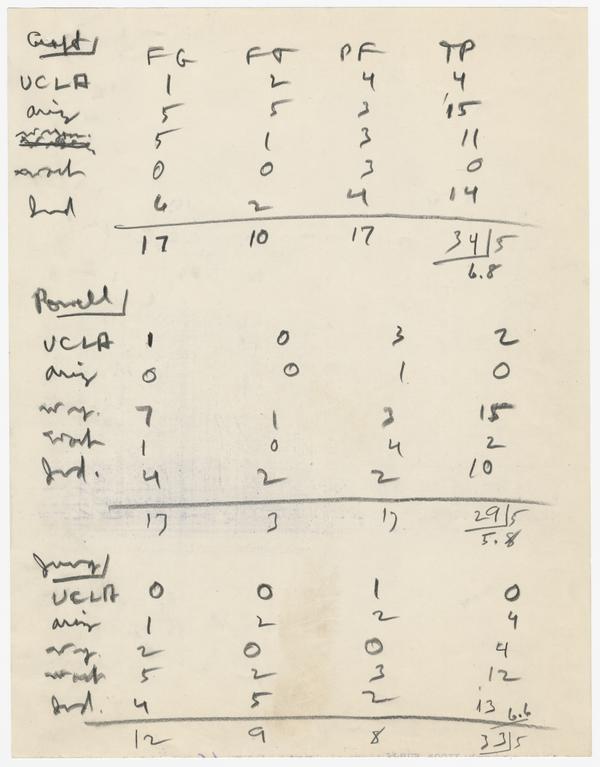 FG FT PF TP
UCLA 1 2 4 4
Ariz 5 5 3 15
5 1 3 11
Wash 0 0 3 0
Ind 6 2 4 14
17 10 17 34/5
6.8
Powell
UCLA 1 0 3 2
Ariz 0 0 1 0
Wy. 7 1 3 15
Wash 1 0 4 2
Ind. 4 2 2 10
13 3 13 29/5
5.8
UCLA 0 0 1 0
Ariz 1 2 2 4
Wy. 2 0 0 4
Wash 5 2 3 12
Ind. 4 5 2 13
6.6
12 9 8 33/5